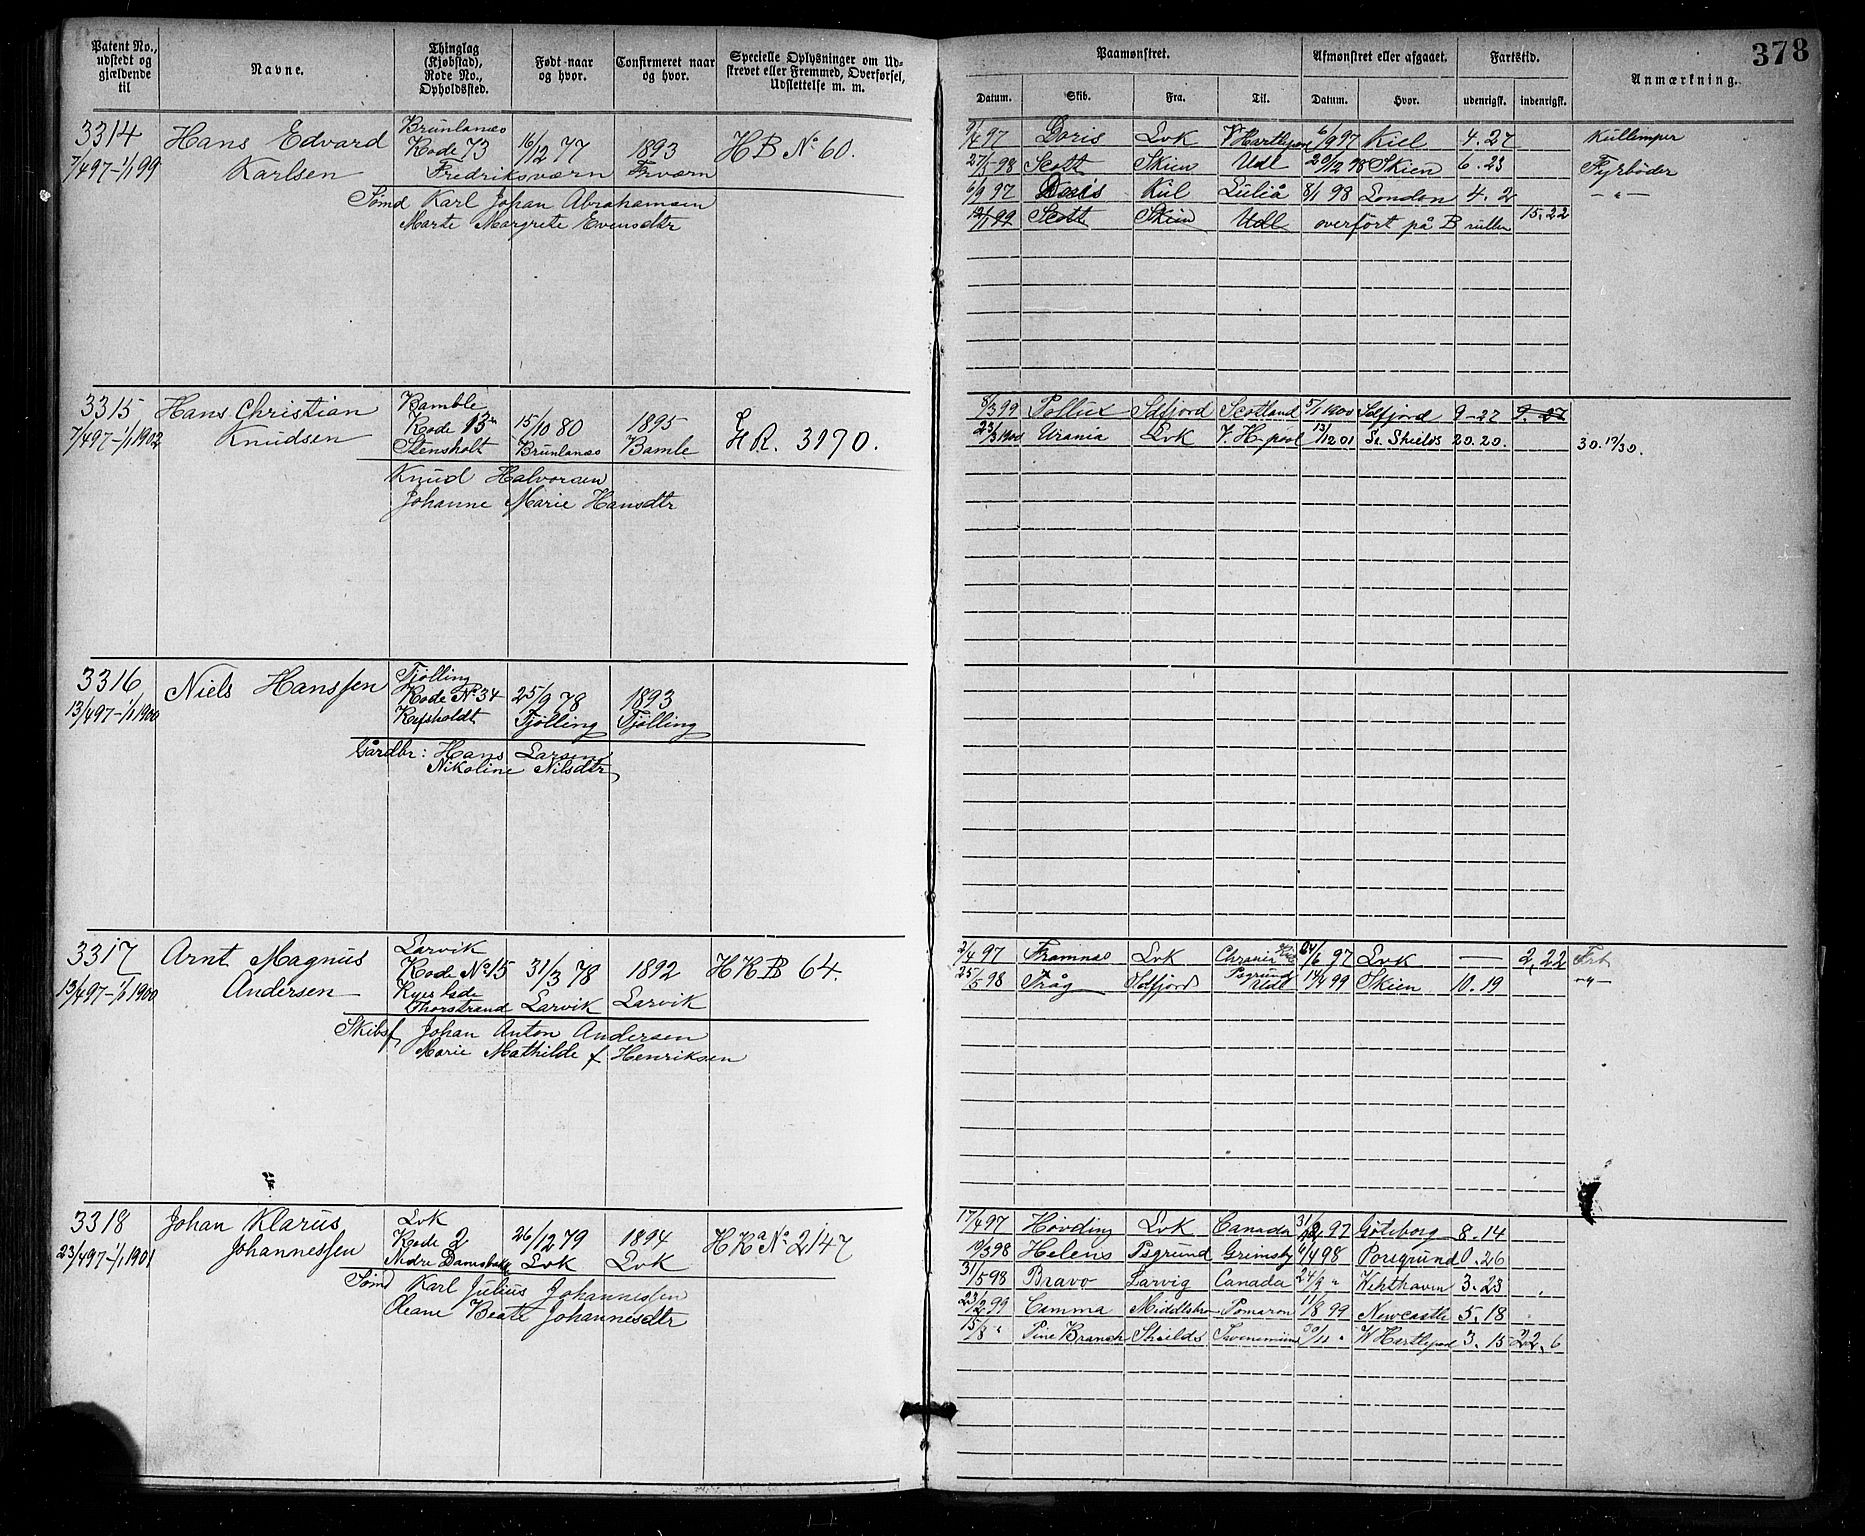 378
Patent No., udstedt og gjældende til
Navne.
Thinglag (Kjøbstad), Rode No., Opholdssted.
Født naar og hvor.
Confirmeret naar og hvor.
Specielle Oplysninger om Udskrevet eller Fremmed, Overførsel, Udslettelse m. m.
Paamønstret.
Afmønstret eller afgaaet.
Fartstid.
Anmærkning.
Datum. Skib. Fra. Til. Datum. Hvor. udenrigsk. indenrigsk.
3314 Hans Edvard Brunlanæs
7/4 97-1/1 99 Karlsen Rode 73 16/12 77 1893 HB No 60.
Fredriksværn Frværn
Sømd Karl Johan Abrahamsen
Marte Margrete Evensdtr
9/4 97 Doris Lvk V Hartlepool 6/9 97 Kiel 4. 27 Kullemper
27/5-98 Scott Skien Udl 20/12 98 Skien 6. 23 Fyrbøder
6/9 97 Doris Kiel Luleå 8/1 98 London 4. 2 — " —
12/1 99 Scott Skien Udl overført på B rullen 15. 22
3315 Hans Christian Bamble
7/4 97-1/1 1902 Knudsen Rode 13 15/10 80 1895 HR. 3170.
Stensholt Brunlanæs Bamle
Knud Halvorsen
Johanne Marie Hansdtr
8/3 99 Pollux Sdfjord Scotland 5/1 1900 Sdfjord 9-27 9-27
23/3 1900 Urania Lvk V. H-pool 13/12 01 So. Shields 20. 20. 30. 17/30.
3316 Niels Hanssen Tjølling
13/4 97-1/1 1900 Rode No 34 25/9 78 1893
Tjølling Tjølling
Gårdbr: Hans Larsen
Nikoline Nilsdtr
3317 Arnt Magnus Larvik
13/4 97-1/1 1900 Andersen Rode No 15 31/3 78 1892 HKB 64.
Thorstrand Larvik Larvik
Skibsf Johan Anton Andersen
Marie Mathilde f. Henriksen
2/4 97 Framnæs Lvk 24/6 97 Lvk — 2, 22
25/5 98 Tråg Sdfjord Psgrund Udl 14/4 99 Skien 10. 19 -"-
3318 Johan Klarus Lvk
23/4 97-1/1 1901 Johannessen Rode 2 26/12 79 1894 HKa No 2147
Nedre Damsbakke Lvk Lvk
Sømd Karl Julius Johannesen
Oleane Beate Johannesdtr
17/4 97 Høvding Lvk Canada 31/12 97 Göteborg 8. 14
10/3 98 Helens Psgrund Grimsby 6/4 98 Porsgrund 0. 26
31/5 98 Bravo Larvig Canada 24/9 " Whthaven 3. 23
23/2 99 Camma Middlsbro Pomaron 11/8 99 Newcastle 5. 18
15/8 " Pine Branch Shields Svenemünd 30/11 " W Hartlepool 3. 15 22. 6